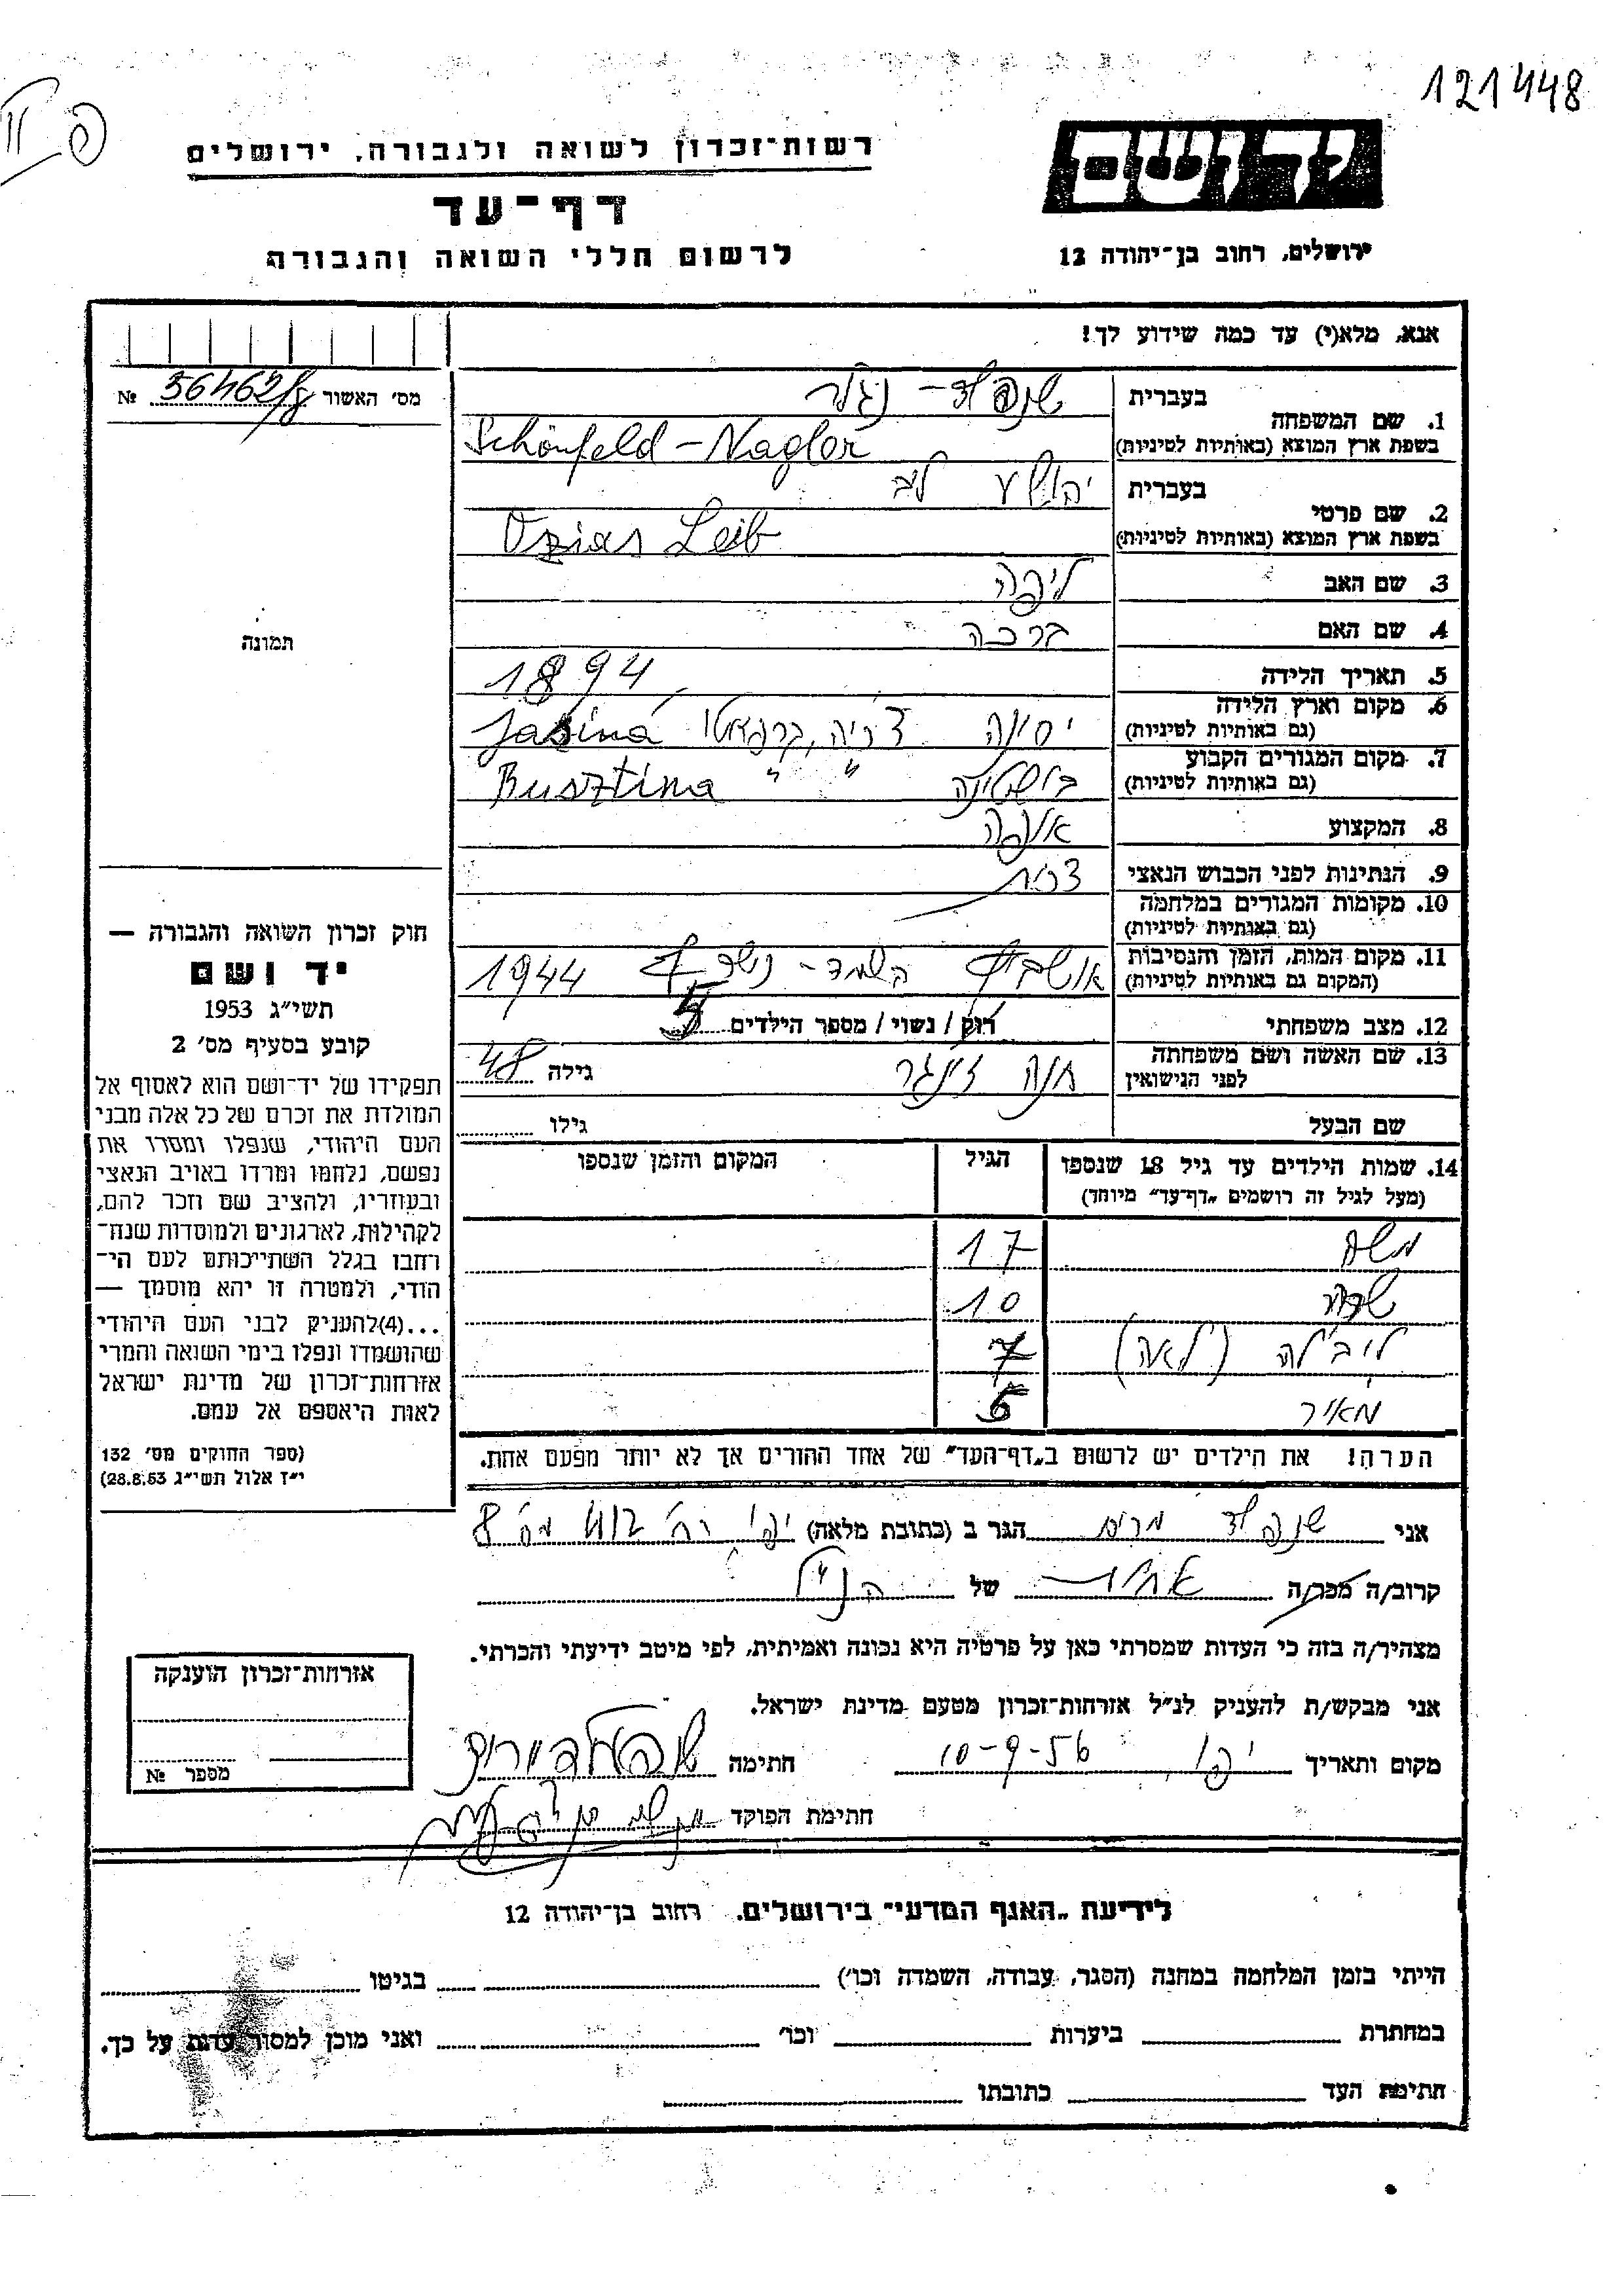 121448
פ
רשות־זכרון לשואה ולגבורה, ירושלים
דף־עד
לרשום חללי השואה והגבורה
יד ושם
ירושלים, רחוב בן־יהודה 12
אנא, מלא(י) עד כמה שידוע לך!
מס׳ האשור 56462/8 №
תמונה
בעברית שנפלד - נגלר
1. שם המשפחה
בשפת ארץ המוצא (באותיות לטיניות) Schönfeld - Nagler
בעברית יהושע לב
2. שם פרטי
בשפת ארץ המוצא (באותיות לטיניות) Ozias Leib
3. שם האב ליפה
4. שם האם ברכה
5. תאריך הלידה 1894
6. מקום וארץ הלידה
(גם באותיות לטיניות) יסינה צ׳כיה, קרפטו Jasina
7. מקום המגורים הקבוע
(גם באותיות לטיניות) בושטינה " " Busztina
8. המקצוע אופה
9. הנתינות לפני הכבוש הנאצי צ׳כית
10. מקומות המגורים במלחמה
(גם באותיות לטיניות)
11. מקום המות, הזמן והנסיבות
(המקום גם באותיות לטיניות) אושביץ הושמד - נשרף 1944
12. מצב משפחתי רוק / נשוי / מספר הילדים 5
13. שם האשה ושם משפחתה
לפני הנישואין חנה זינגר גילה 48
שם הבעל גילו
14. שמות הילדים עד גיל 18 שנספו הגיל המקום והזמן שנספו
(מעל לגיל זה רושמים „דף־עד״ מיוחד)
משה 17
שרה 10
ליבלה (לאה) 7
מאיר 5
הערה! את הילדים יש לרשום ב„דף־העד״ של אחד ההורים אך לא יותר מפעם אחת.
חוק זכרון השואה והגבורה —
יד ושם
תשי״ג 1953
קובע בסעיף מס׳ 2
תפקידו של יד־ושם הוא לאסוף אל
המולדת את זכרם של כל אלה מבני
העם היהודי, שנפלו ומסרו את
נפשם, נלחמו ומרדו באויב הנאצי
ובעוזריו, ולהציב שם וזכר להם,
לקהילות, לארגונים ולמוסדות שנח־
רחבו בגלל השתייכותם לעם הי־
הודי, ולמטרה זו יהא מוסמך —
...(4)להעניק לבני העם היהודי
שהושמדו ונפלו בימי השואה והמרי
אזרחות־זכרון של מדינת ישראל
לאות היאספם אל עמם.
(ספר החוקים מס׳ 132
י״ז אלול תשי״ג 28.8.53)
אני שנפלד מרים הגר ב (כתובת מלאה) יפו רח׳ מס׳ 8
קרוב/ה מכר/ה אחות של הנ״ל
מצהיר/ה בזה כי העדות שמסרתי כאן על פרטיה היא נכונה ואמיתית, לפי מיטב ידיעתי והכרתי.
אני מבקש/ת להעניק לנ״ל אזרחות־זכרון מטעם מדינת ישראל.
מקום ותאריך יפו, 10-9-56 חתימה
חתימת הפוקד
אזרחות־זכרון הוענקה
מספר №
לידיעת „האגף המדעי״ בירושלים, רחוב בן־יהודה 12
הייתי בזמן המלחמה במחנה (הסגר, עבודה, השמדה וכו׳) בגיטו
במחתרת ביערות וכו׳ ואני מוכן למסור עדות על כך.
חתימת העד כתובתו